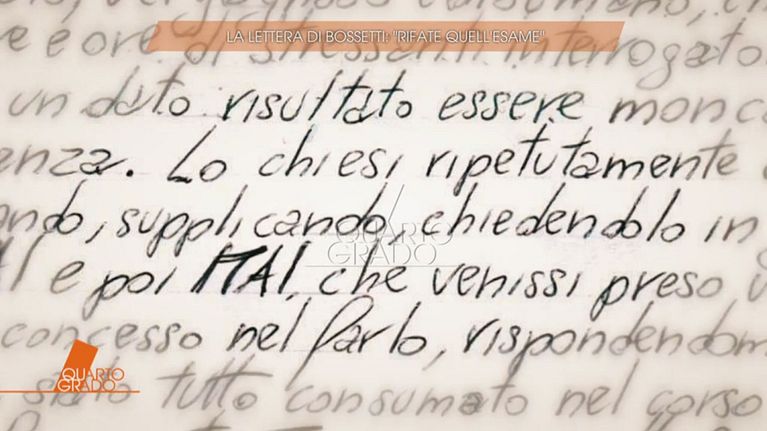 LA LETTERA DI BOSSETTI: "RIFATE QUELL'ESAME"
e e ore di stressanti interrogato
un dato risultato essere monc
enza. Lo chiesi ripetutamente
ndo, supplicando, chiedendolo in g
I e poi MAI, che venissi preso,
concesso nel farlo, rispondendom
stato tutto consumato nel corso
QUARTO
GRADO
QUARTO
GRADO